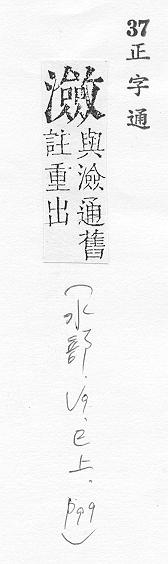 37 正字通
瀲
與澰通舊
註重出
(水部.V9.巳上.p99)